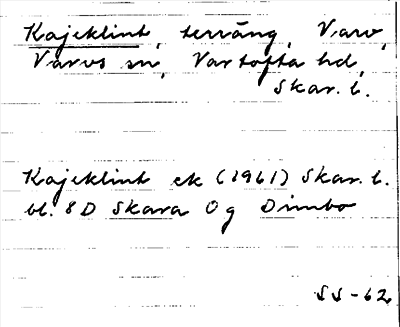 Kajeklint, terräng, Varv,
Varvs sn, Vartofta hd,
Skar. l.
Kajeklint ek (1961) Skar. l.
bl. 8 D Skara Og Dimbo
SS-62